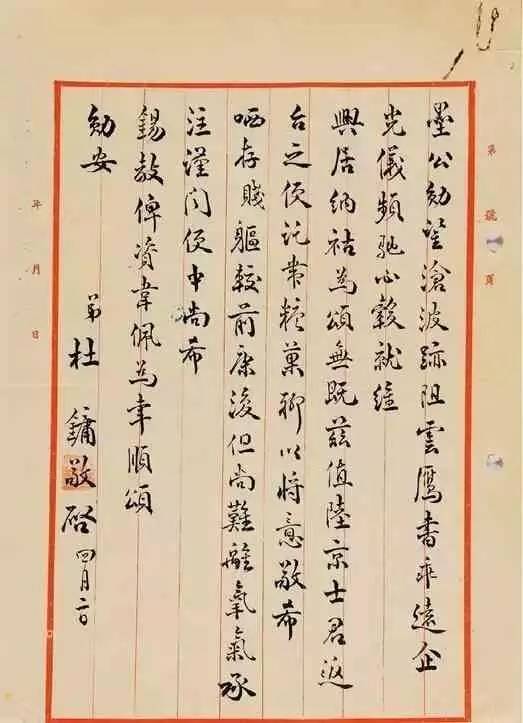 墨公勛望滄波跡阻雲雁書乖遠企
光儀頻馳心轂就維
興居納祜為頌無既茲值陸京士君返
台之便託帶糖菓聊以將意敬希
哂存賤軀較前康復但尚難離氧氣承
注謹聞便中尚希
錫教俾資韋佩為幸順頌
勛安
弟杜鏞敬啓 四月二日
第 號 頁
年 月 日